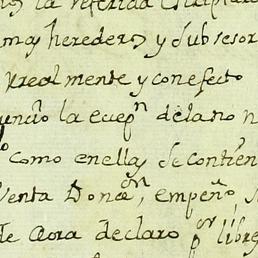 la referida
mas herederos y subsesor
y realmente y con efecto
uncio la ecepn dela no n
como en ellas se contien
Venta Donon, empeño,
de aora declaro pr libre